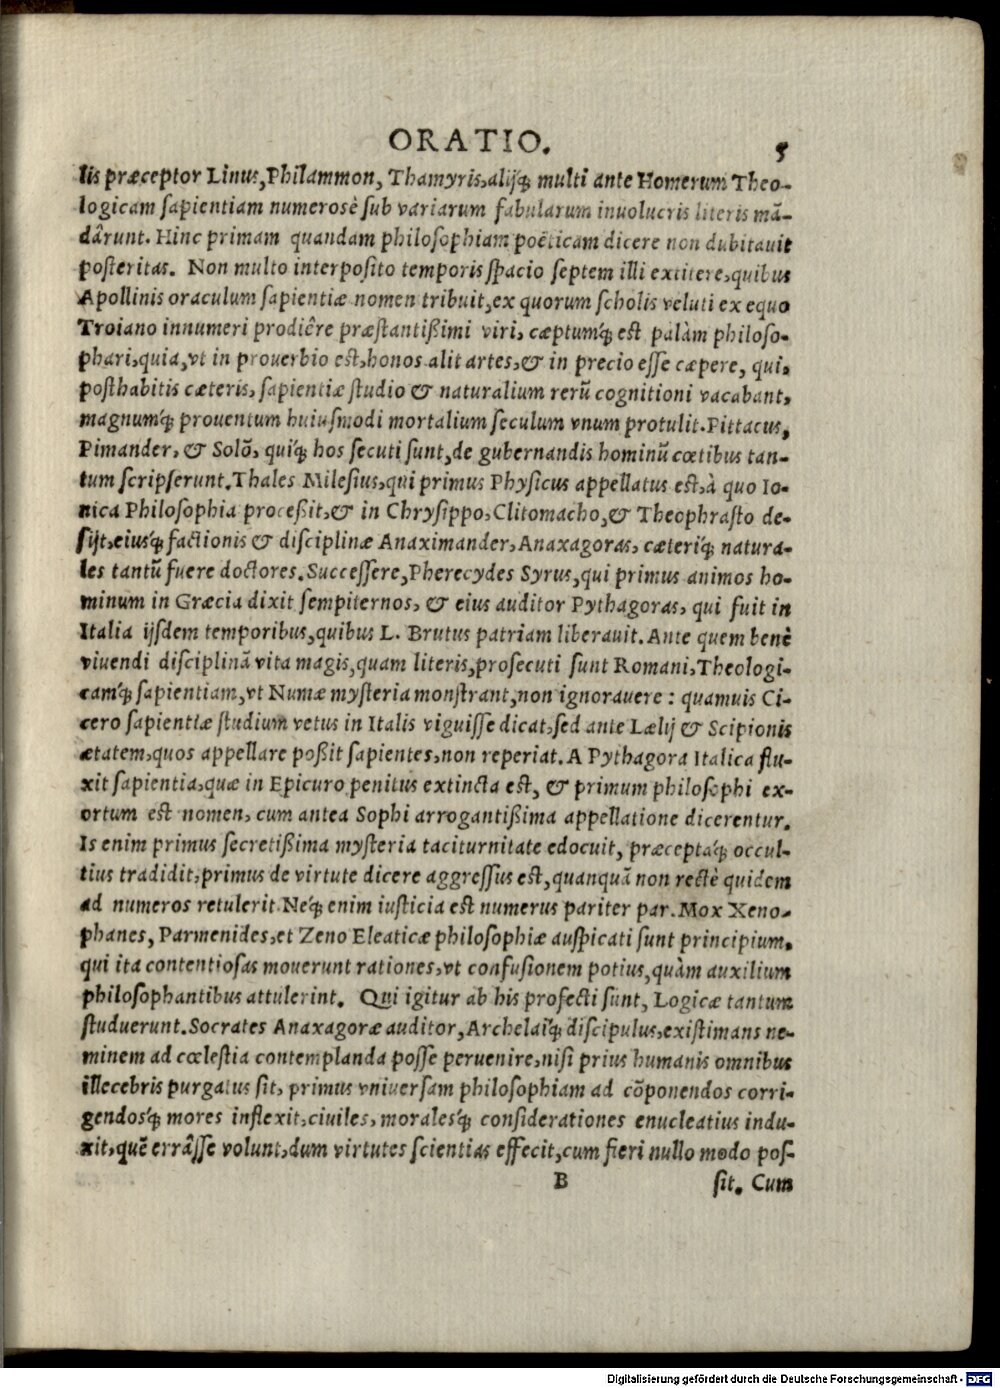 ORATIO. 5
lis præceptor Linus, Philammon, Thamyris, alijq́; multi ante Homerum Theo-
logicam sapientiam numerosè sub variarum fabularum inuolucris literis mã-
dârunt. Hinc primam quandam philosophiam poëticam dicere non dubitauit
posteritas. Non multo interposito temporis spacio septem illi extitere, quibus
Apollinis oraculum sapientiæ nomen tribuit, ex quorum scholis veluti ex equo
Troiano innumeri prodiêre præstantißimi viri, cæptumq́; est palàm philoso-
phari, quia, vt in prouerbio est, honos alit artes, & in precio esse cæpere, qui,
posthabitis cæteris, sapientiæ studio & naturalium rerũ cognitioni vacabant,
magnumq́; prouentum huiusmodi mortalium seculum vnum protulit. Pittacus,
Pimander, & Solõ, quiq́; hos secuti sunt, de gubernandis hominũ cœtibus tan-
tum scripserunt. Thales Milesius, qui primus Physicus appellatus est, à quo Io-
nica Philosophia proceßit, & in Chrysippo, Clitomacho, & Theophrasto de-
sijt, eiusq́; factionis & disciplinæ Anaximander, Anaxagoras, cæteriq́; natura-
les tantũ fuere doctores. Successere, Pherecydes Syrus, qui primus animos ho-
minum in Græcia dixit sempiternos, & eius auditor Pythagoras, qui fuit in
Italia ijsdem temporibus, quibus L. Brutus patriam liberauit. Ante quem benè
viuendi disciplinã vita magis, quam literis, prosecuti sunt Romani, Theologi-
camq́; sapientiam, vt Numæ mysteria monstrant, non ignorauere : quamuis Ci-
cero sapientiæ studium vetus in Italis viguisse dicat, sed ante Lælij & Scipionis
ætatem, quos appellare poßit sapientes, non reperiat. A Pythagora Italica flu-
xit sapientia, quæ in Epicuro penitus extincta est, & primum philosophi ex-
ortum est nomen, cum antea Sophi arrogantißima appellatione dicerentur.
Is enim primus secretißima mysteria taciturnitate edocuit, præceptaq́; occul-
tius tradidit, primus de virtute dicere aggressus est, quanquã non rectè quidem
ad numeros retulerit. Neq́; enim iusticia est numerus pariter par. Mox Xeno-
phanes, Parmenides, et Zeno Eleaticæ philosophiæ auspicati sunt principium,
qui ita contentiosas mouerunt rationes, vt confusionem potius, quàm auxilium
philosophantibus attulerint. Qui igitur ab his profecti sunt, Logicæ tantum
studuerunt. Socrates Anaxagoræ auditor, Archelaiq́; discipulus, existimans ne-
minem ad cœlestia contemplanda posse peruenire, nisi prius humanis omnibus
illecebris purgatus sit, primus vniuersam philosophiam ad cõponendos corri-
gendosq́; mores inflexit, ciuiles, moralesq́; considerationes enucleatius indu-
xit, quẽ errâsse volunt, dum virtutes scientias effecit, cum fieri nullo modo pos-
B sit. Cum
Digitalisierung gefördert durch die Deutsche Forschungsgemeinschaft - DFG